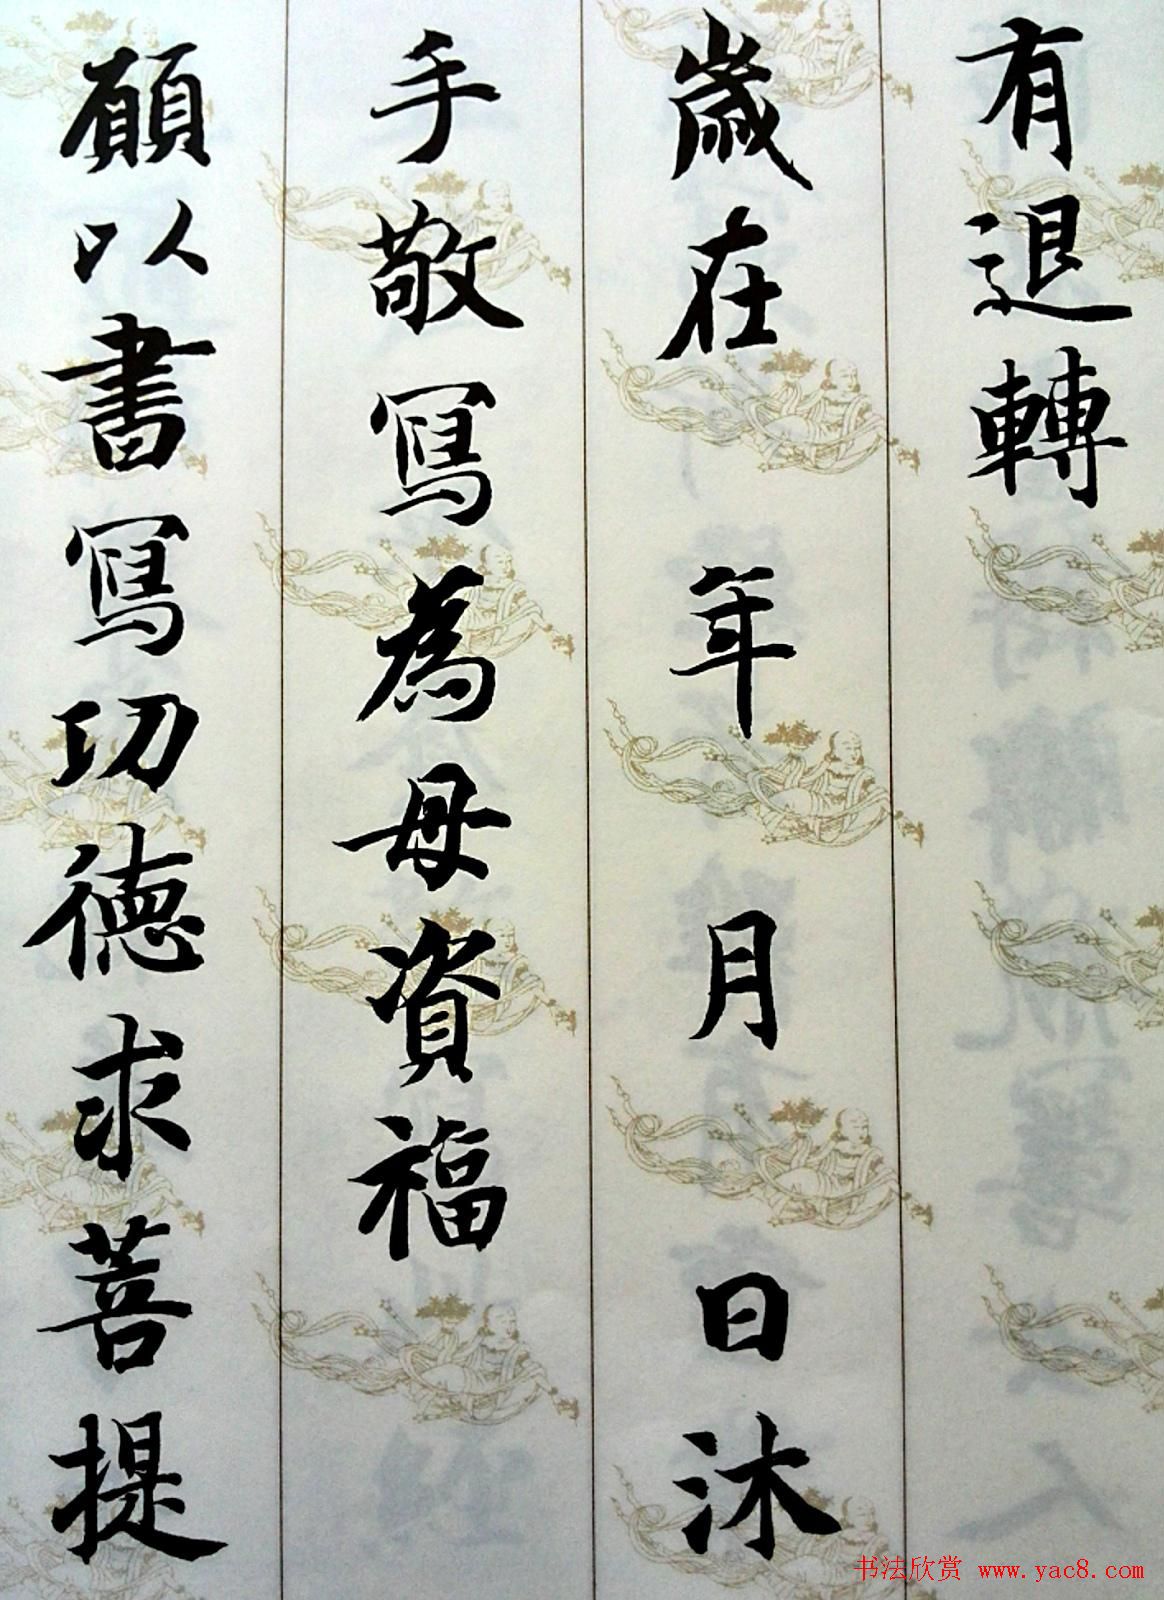 有退轉
歲在 年 月 日沐
手敬寫為母資福
願以書寫功德求菩提
书法欣赏 www.yac8.com